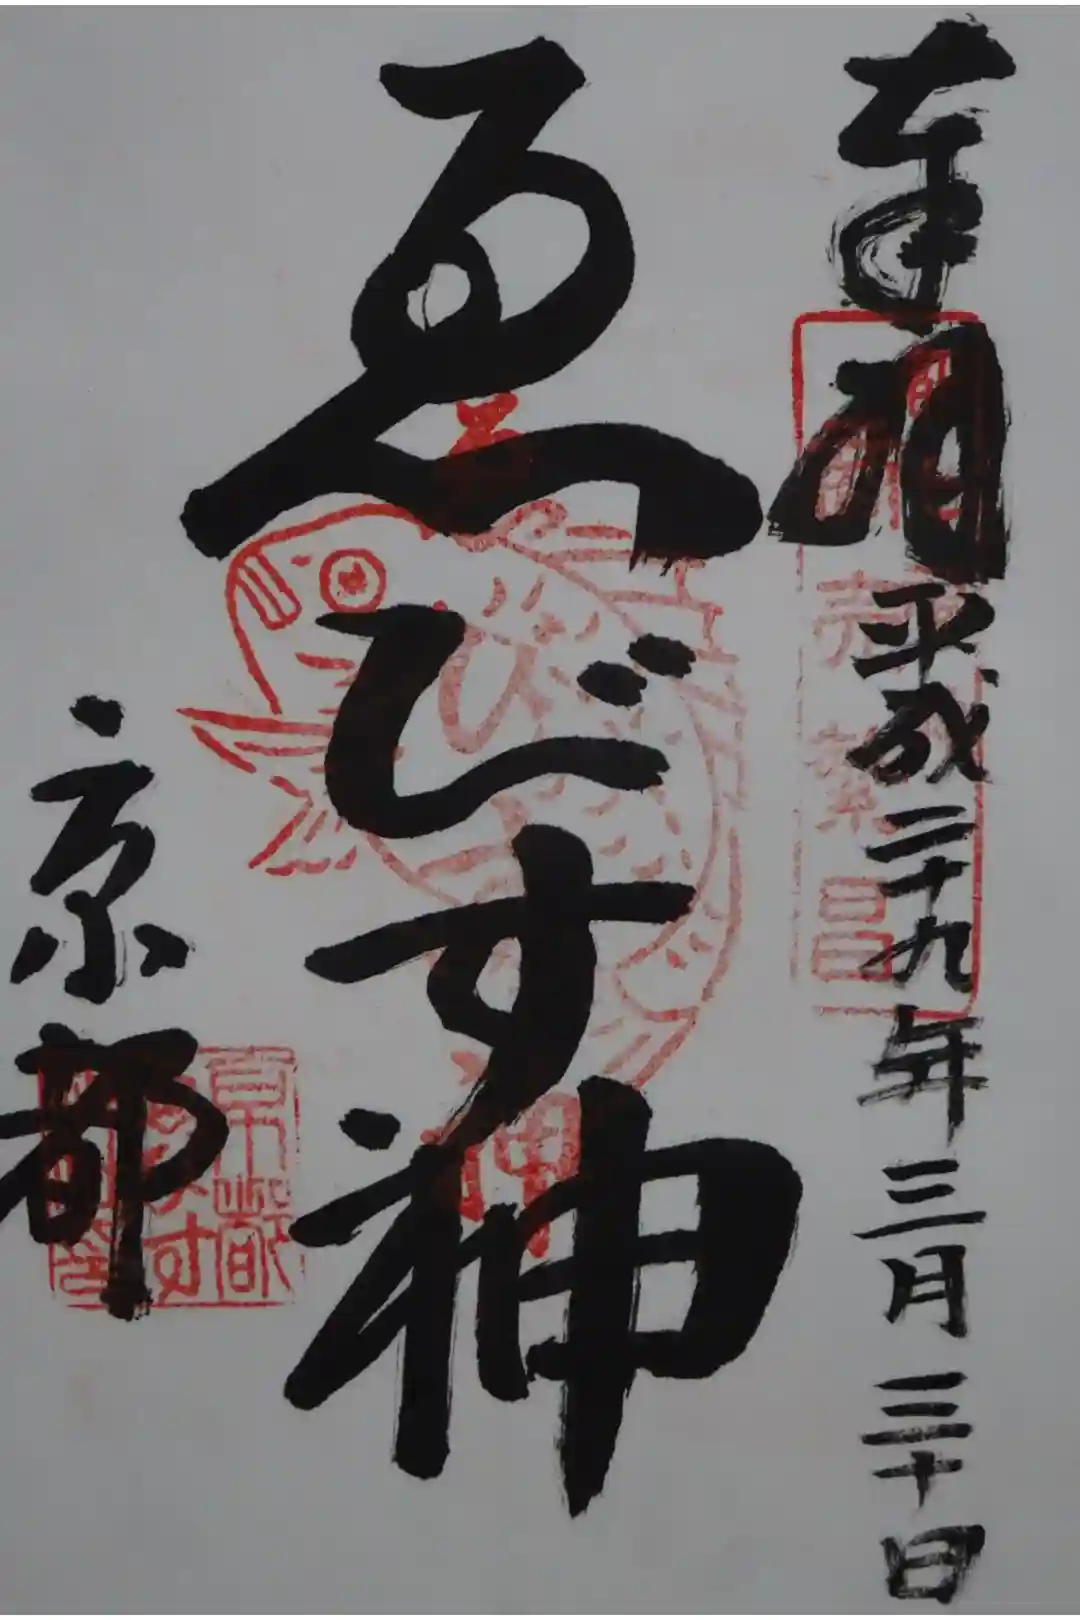 奉拝
平成二十九年三月三十日
商売繁昌
ゑびす神
京都